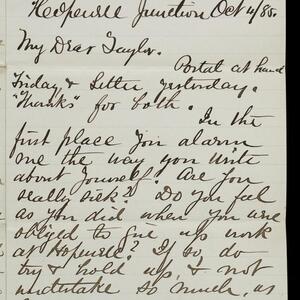 Hopewell Junction Oct 4/80.
My Dear Taylor.
Postal at hand
Friday & Letter yesterday.
"Thanks" for both. In the
first place you alarm
me the way you write
about yourself. Are you
really sick? Do you feel
as you did when you were
obliged to give up work
at Hopewell? If so, do
try & hold up, & not
undertake so much, as